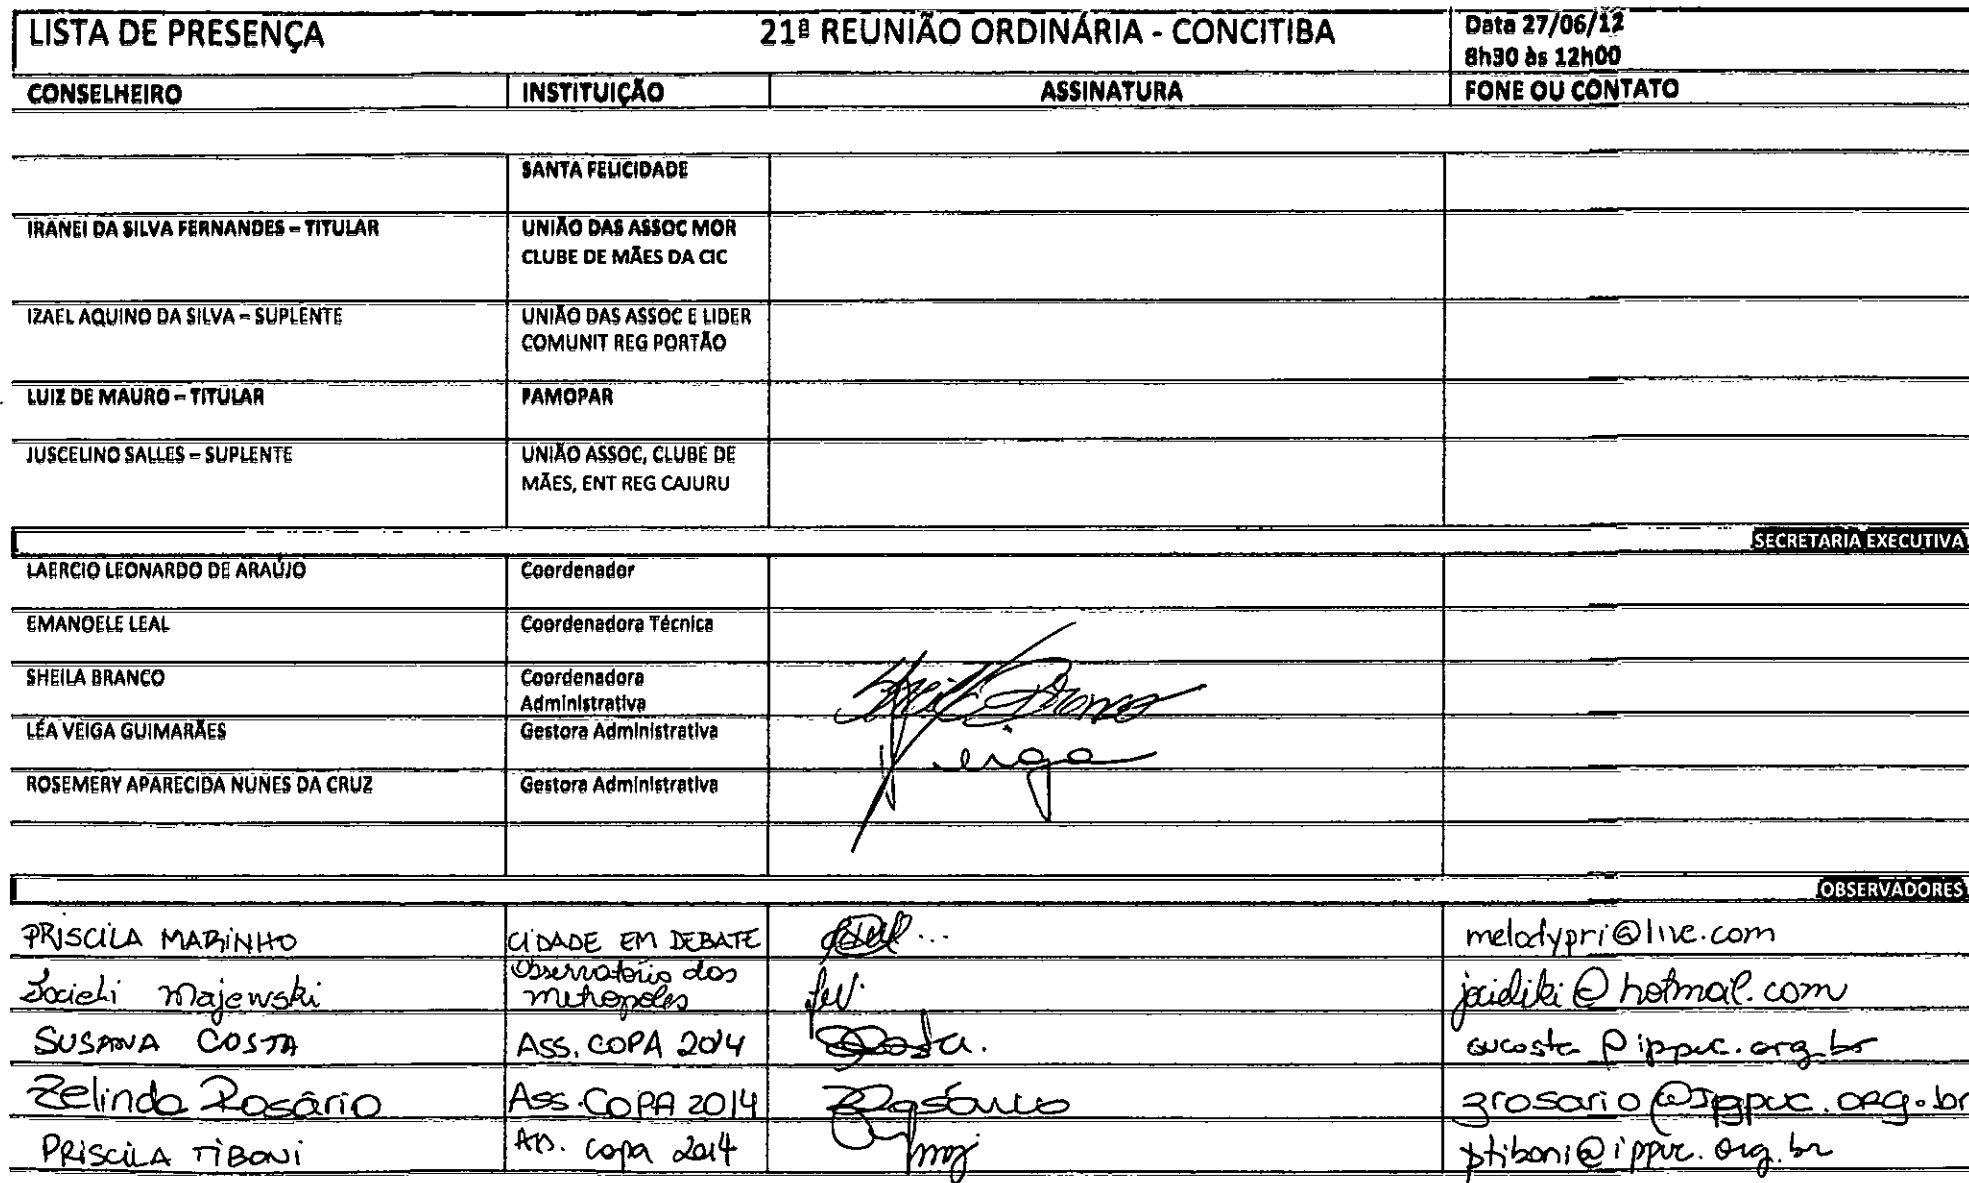 LISTA DE PRESENÇA 21ª REUNIÃO ORDINÁRIA - CONCITIBA Data 27/06/12
8h30 às 12h00
CONSELHEIRO INSTITUIÇÃO ASSINATURA FONE OU CONTATO
SANTA FELICIDADE
IRANEI DA SILVA FERNANDES – TITULAR UNIÃO DAS ASSOC MOR
CLUBE DE MÃES DA CIC
IZAEL AQUINO DA SILVA – SUPLENTE UNIÃO DAS ASSOC E LIDER
COMUNIT REG PORTÃO
LUIZ DE MAURO – TITULAR FAMOPAR
JUSCELINO SALLES – SUPLENTE UNIÃO ASSOC, CLUBE DE
MÃES, ENT REG CAJURU
SECRETARIA EXECUTIVA
LAERCIO LEONARDO DE ARAÚJO Coordenador
EMANOELE LEAL Coordenadora Técnica
SHEILA BRANCO Coordenadora
Administrativa
LÉA VEIGA GUIMARÃES Gestora Administrativa Veiga
ROSEMERY APARECIDA NUNES DA CRUZ Gestora Administrativa
OBSERVADORES
PRISCILA MARINHO CIDADE EM DEBATE melodypri@live.com
Majewski Observatório das
metropoles @hotmail.com
SUSANA COSTA ASS. COPA 2014 sucosta@ippuc.org.br
Zelinda Rosário Ass. COPA 2014 ZRosário zrosario@ippuc.org.br
PRISCILA TIBONI Ass. copa 2014 ptiboni@ippuc.org.br